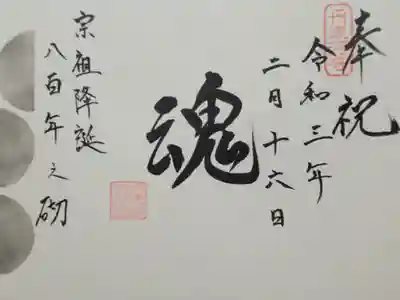 奉祝
令和三年
二月十六日
魂
宗祖降誕
八百年之砌